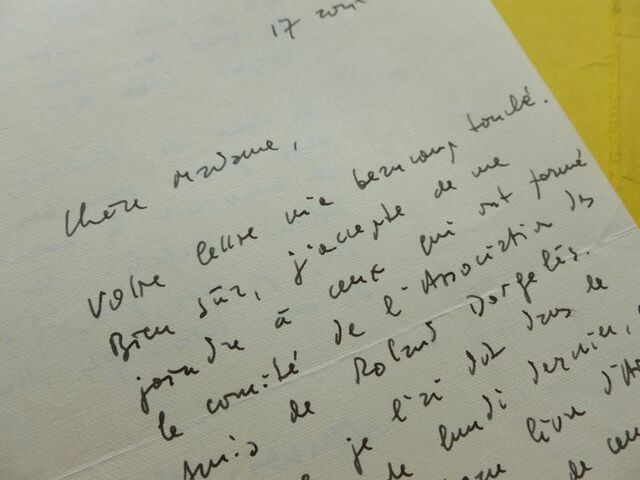 17
Chère Madame,
Votre lettre m'a beaucoup touché.
Bien sûr, j'accepte de me
joindre à ceux qui ont formé
le comité de l'Association des
Amis de Roland Dorgelès.
je l'ai dit dans le
de lundi dernier,
livre d'A
de ceu